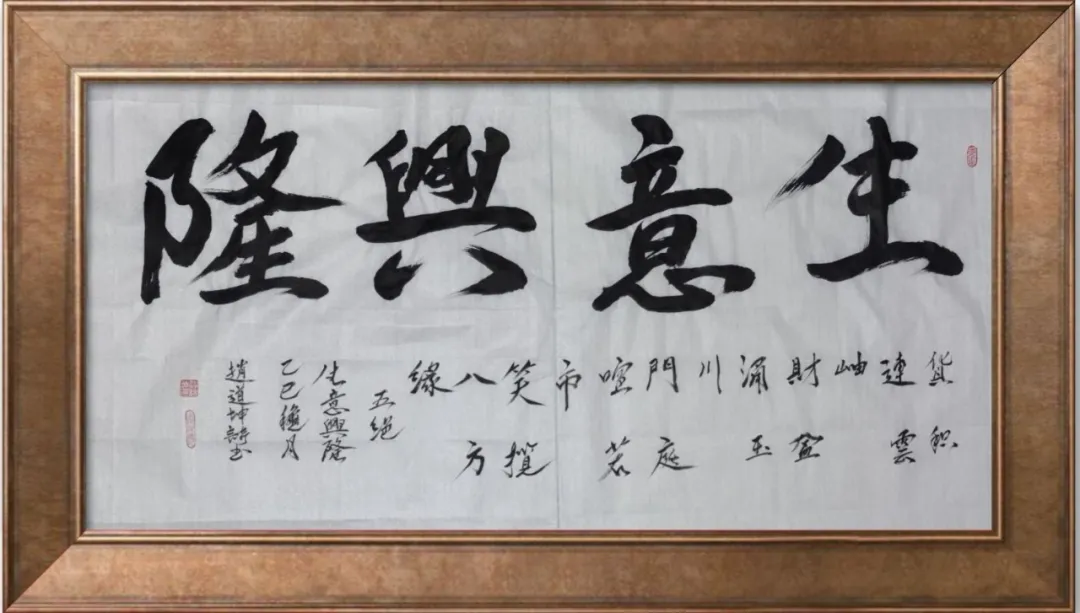 生意興隆
貨積
連雲
岫
財盈
涌玉
川
門庭
喧若
市
笑攬
八方
緣
五絕
生意興隆
乙巳穐月
趙道坤詩書